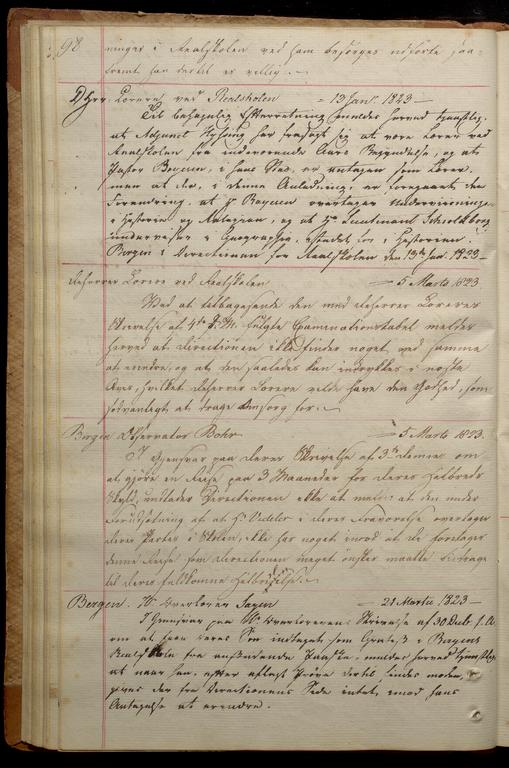 98
ninger i Realskolen ved ham besørges udførte saa-
fremt han dertil er villig.
DHrr. Lærere ved Realskolen = 13 Jan. 1823 —
Til behagelig Efterretning meldes herved tjenstlig,
at Adjunct har frasagt sig at være Lærer ved
Realskolen fra indeværende Aars Begyndelse, og at
Pastor Beyum, i hans Sted, er antagen som Lærer.
men at der, i denne Anledning, er foregaaet den
Forandring, at Hr Beyum overtager Underviisningen
i Historie og Religion, og at Hr Lieutenant
underviser i Geographie, istedet for i Historien.
Bergen i Directionen for Realskolen den 13de Jan. 1823 —
deHerrer Lærere ved Realskolen = 5 Marts 1823
Ved at tilbagesende den med deHerrer Læreres
Skrivelse af 4de d. M. fulgte Examinationstabel meldes
herved at Directionen ikke finder noget ved samme
at erindre, og at den saaledes kan indrykkes i næste
Avis, hvilket deHerrer Lærere vilde have den Godhed, som
sædvanligt, at drage Omsorg for.
Bergen Observator Bohr = 5 Marts 1823.
I Gjensvar paa Deres Skrivelse af 3de dennes om
at gjøre en Reise paa 3 Maaneder for Deres Helbreds
Skyld, undlader Directionen ikke at melde at den under
Forudsætning af at Hr Vedeler i Deres Fraværelse overtager
Deres Partes i Skolen, ikke har noget imod at De foretager
denne Reise som Directionen meget ønsker maatte bidrage
til Deres fuldkomne Helbredelse.
Bergen. Hr Overlærer Sagen = 21 Martii 1823 —
I Gjensvar paa Hr Overlærerens Skrivelse af 30 Decb. f. A.
om at faae Deres Søn indtaget som Gratist i Bergens
Realskole fra anstundende Paaske, meldes herved tjenstligst,
at naar han, efter aflagt Prøve dertil findes moden,
haves der fra Directionens Side intet, imod hans
Antagelse at erindre.